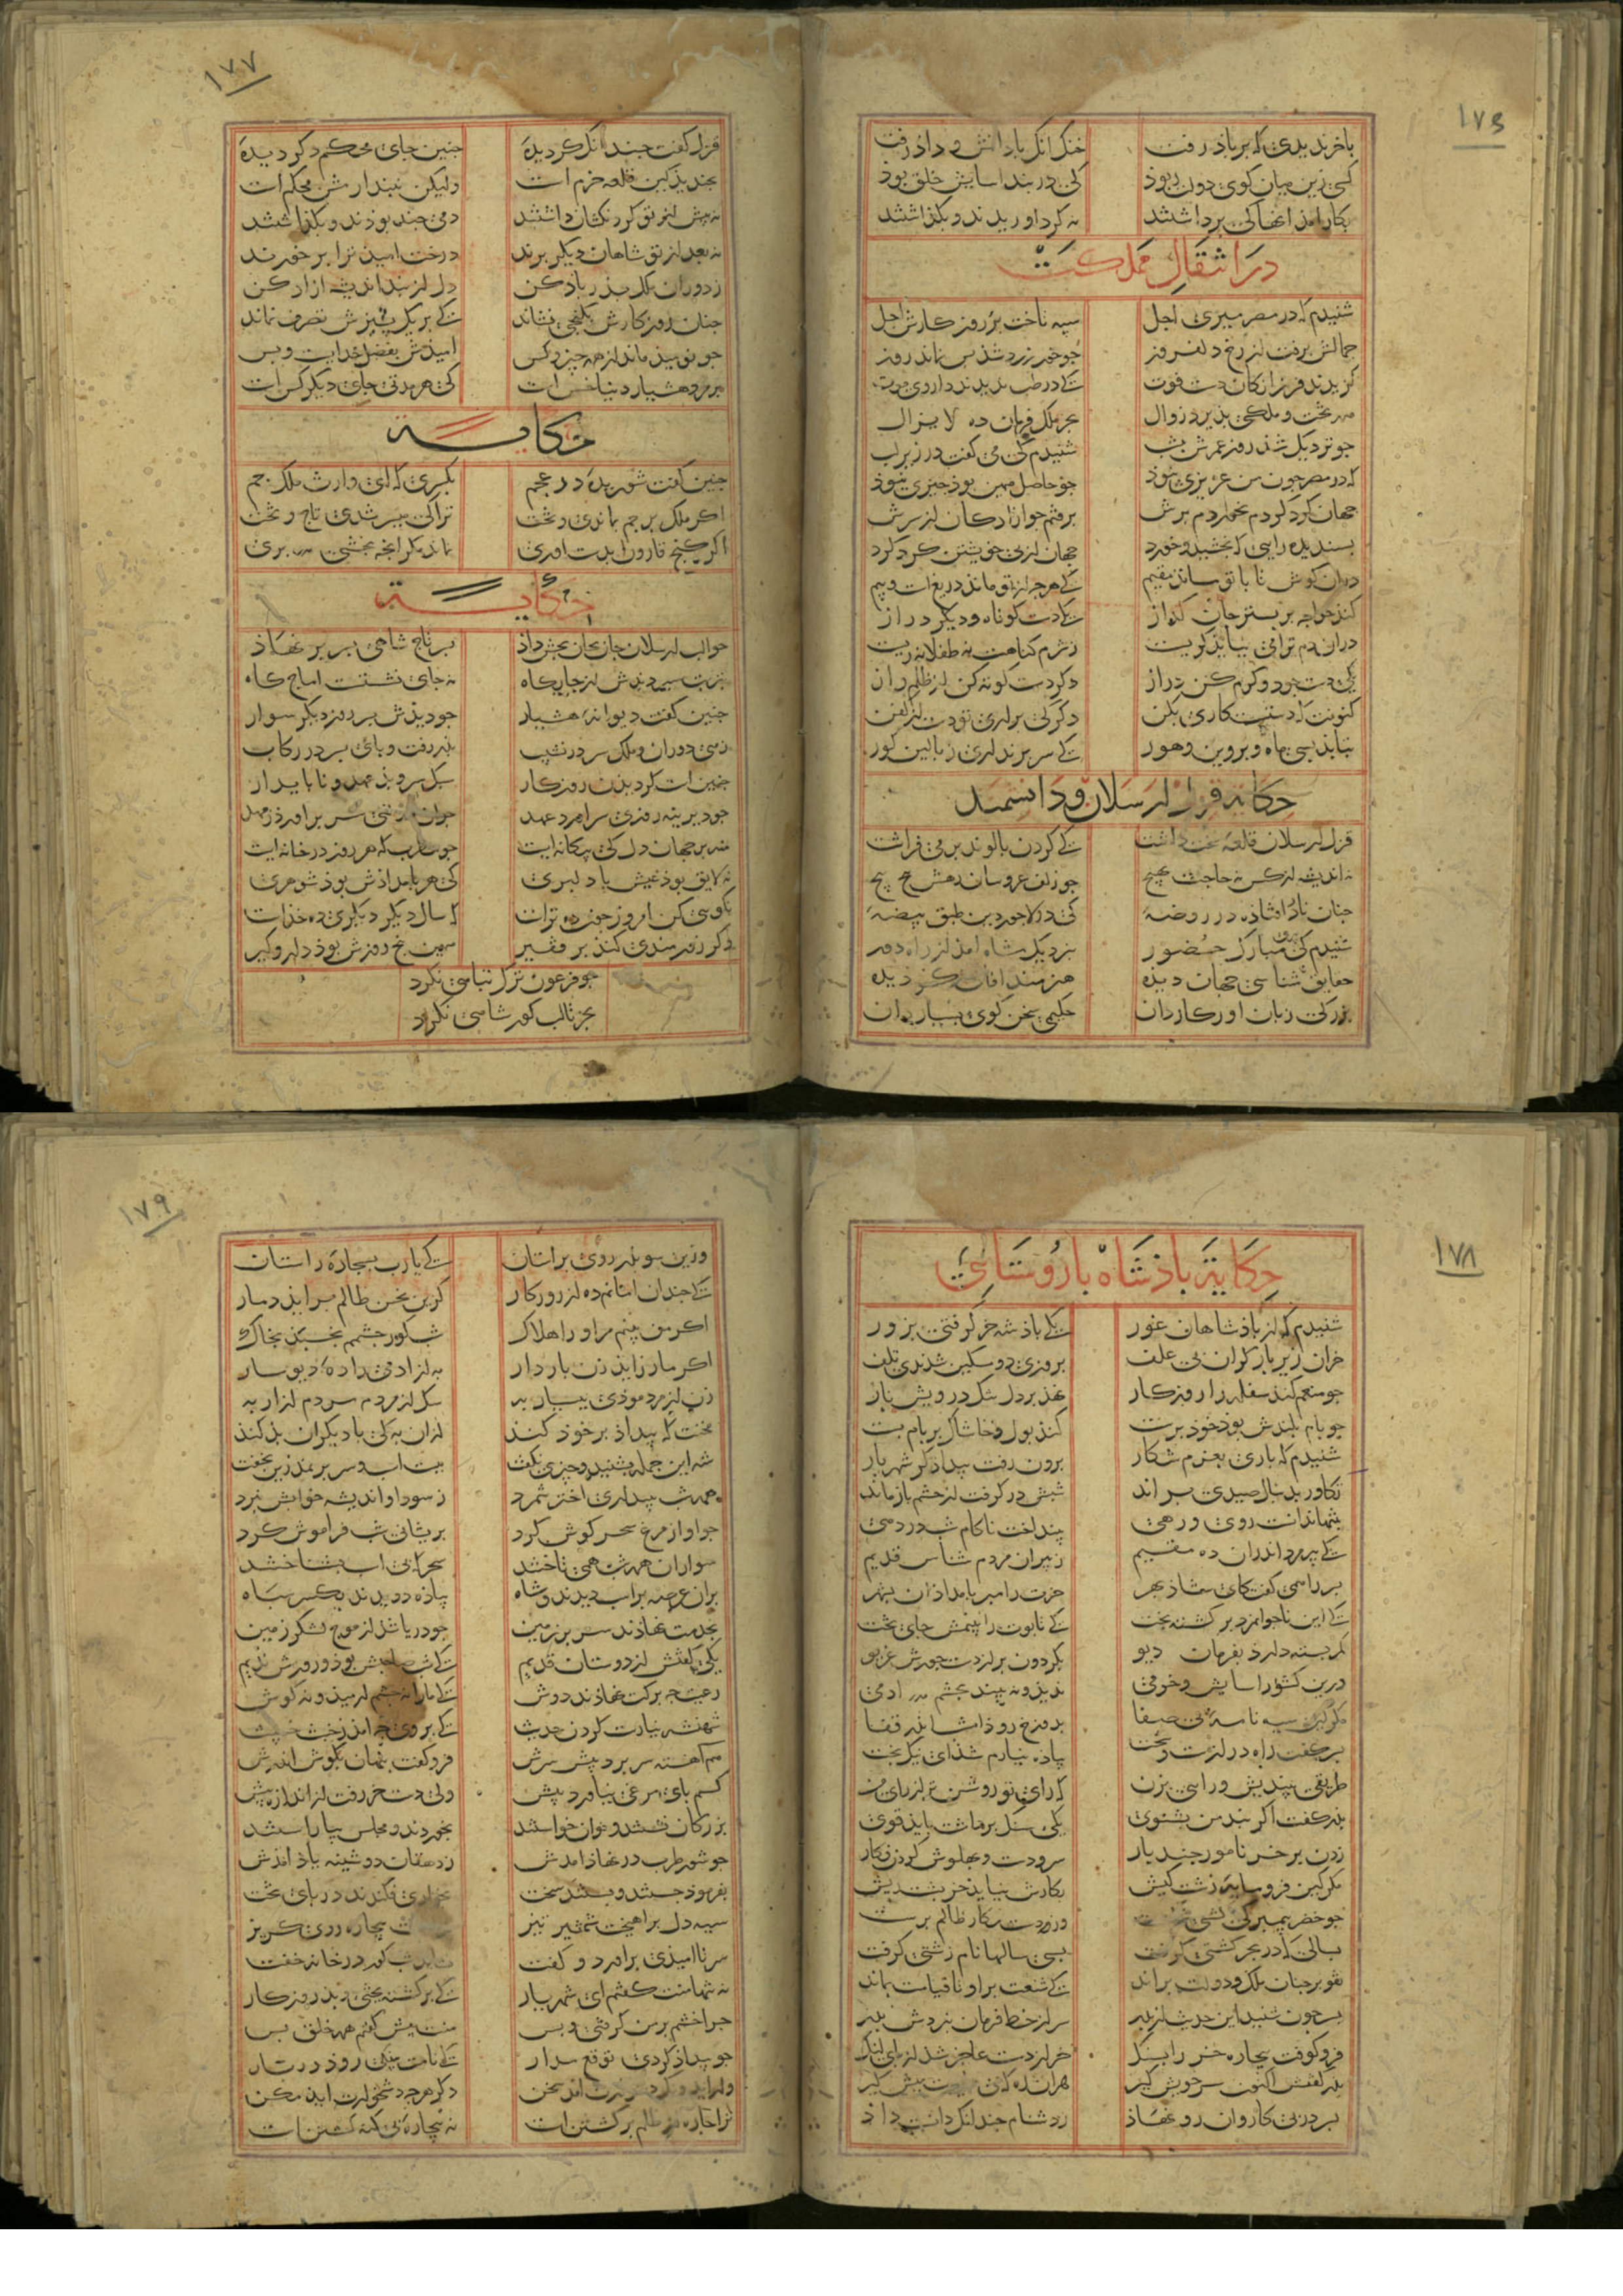 ۱۷۶
باخر ندیدی که بر باد رفت خنک آنک با دانش و داد رفت
کسی زین میان کوی دولت ربوذ کی در بند آسایش خلق بوذ
بکار آمذ آنها کی برداشتند نه کرد اوریدند و بکذاشتند
در انتقال مملکت
شنیدم که در مصر میری اجل سپه تاخت بر روزکارش اجل
جمالش برفت از رخ دلفروز جو خور زرد شذ بس نماند روز
کزیدند فرزانکان دست فوت کی در طب ندیدند داروی موت
همه تخت و ملکی بذیرد زوال بجز ملک فرمان ده لایزال
جو نزدیک شذ روز عمرش بشب شنیدم کی می کفت در زیر لب
که در مصر جون من عزیزی نبوذ جو حاصل همین بوذ جیزی نبوذ
جهان کرد کردم نخوردم برش برفتم جو آزادکان از سرش
بسندیده رایی که بخشید و خورد جهان از بی خویشتن کرد کرد
دران کوش تا با تو ماند مقیم کی هرجه از تو ماند دریغ است و بیم
کند خواجه بر بستر جان کداز یکی دست کوتاه و دیکر دراز
دران دم ترا می نباید کریست
یکی دست جود و کرم کن دراز دکر دست کوته کن از ظلم و آز
کنونت که دستست کاری بکن دکر کی براری تو دست از کفن
بتابد بسی ماه و بروین و هور کی سر برنداری ز بالین کور
حکایة قزل ارسلان و دانشمند
قزل ارسلان قلعه سخت داشت کی کردن بالوند بر می فراشت
نه اندیشه از کس نه حاجت بهیچ جو زلف عروسان رهش بیج بیج
جنان نادر افتاذه در روضه کی در لاجوردین طبق بیضه
شنیدم کی مرد مبارک حضور بنزدیک شاه آمد از راه دور
حقایق شناسی جهان دیده هنرمند آفاق کردیده
بزرکی زبان آور کاردان حکیمی سخن کوی بسیاردان
۱۷۷
قزل کفت جندانک کردیده جنین جای محکم دکر دیده
بخندید کین قلعه خرم است ولیکن نپندارمش محکم است
نه پیش از تو کردنکشان داشتند دمی جند بوذند و بکذاشتند
نه بعد از تو شاهان دیکر برند درخت امید ترا بر خورند
ز دوران ملک بذر یاذ کن دل از بند اندیشه آزاد کن
جنان روزکارش بکنجی نشاند کی بر یک پشیزش تصرف نماند
جو نومیذ ماند از همه جیز و کس امیذش بفضل خدایست و بس
بر مرد هشیار دنیا خس است کی هر مدتی جای دیکر کس است
حکایة
جنین کفت شوریده در عجم بکسری که ای وارث ملک جم
اکر ملک بر جم بماندی و تخت ترا کی میسر شدی تاج و تخت
اکر کنج قارون بدست آوری نماند مکر آنجه بخشی بری
حکایة
جو الب ارسلان جان بجان بخش داذ بسر تاج شاهی بسر بر نهاذ
بتربت سپردندش از جایکاه نه جای نشستست آماج کاه
جنین کفت دیوانه هشیار جو دیذش بسر روز دیکر سوار
زهی دوران و ملک سر در نشیب بذر رفت و بای بسر در رکاب
جنین است کردیدن روزکار سبک سیر و بد عهد و نابایدار
جو دیرینه روزی سرآورد عهد جوان دولتی سر برآورد ز مهد
منه بر جهان دل کی بیکانه ایست جو مطرب که هر روز در خانه ایست
نه لایق بوذ عیش با دلبری کی هر بامداذش بوذ شوهری
نکویی کن امروز جون ده تراست که سال دیکر دیکری ده خداست
جو فرعون ترک تباهی نکرد
بجز تا لب کور شاهی نکرد
۱۷۸
حکایة باذشاه با روستائی
شنیدم که از باذشاهان غور یکی باذشه خر کرفتی بزور
خران زیر بار کران بی علف بروزی دو مسکین شدندی تلف
جو منعم کند سفله را روزکار نهذ بر دل تنک درویش بار
جو بام بلندش بوذ خودبرست کند بول و خاشاک بر بام بست
شنیدم که باری بعزم شکار برون رفت بیداذکر شهریار
تکاور بدنبال صیدی براند شبش در کرفت از حشم باز ماند
بتنها ندانست روی و رهی بینداخت ناکام شب در دهی
یکی بیرمرد اندران ده مقیم ز پیران مردم شناس قدیم
بسر را همی کفت کای شاذ بهر خرت را مبر بامداذان بشهر
کی این ناجوانمرد برکشته بخت کی تابوت را بینمش جای تخت
کمر بسته دارد بفرمان دیو بکردون بر از دست جورش غریو
درین کشور آسایش و خرمی ندید و نه بیند بجشم آدمی
مکر این سیه نامه بی صفا بدوزخ روذ اشا بذر قفا
بسر کفت راه درازست و سخت بیاده نیارم شذ ای نیک بخت
طریقی بیندیش و رایی بزن که رای تو روشن تر از رای من
بذر کفت اکر بند من بشنوی یکی سنک برداشت باید قوی
زدن بر خر نامور جند بار سر و دست و بهلوش کردن فکار
مکر کین فرومایه زشت کیش بکارش نیاید خر بشت ریش
جو خضر پیمبر کی کشتی شکست وزو دست جبار ظالم ببست
بسالی که در بحر کشتی کرفت بسی سالها نام زشتی کرفت
تفو بر جنان ملک و دولت براند کی شنعت برو تا قیامت بماند
بسر جون شنید این حدیث از بذر سر از خط فرمان نبردش بدر
فرو کوفت بیچاره خر را بسنک خر از دست عاجز شد از بای لنک
بذر کفتش اکنون سر خویش کیر هران ره کی می بایدت پیش کیر
بسر در بی کاروان رو نهاذ ز دشنام جندانک دانست داذ
۱۷۹
وزین سو بذر روی بر آستان کی یارب بسجاده راستان
کی جندان امانم ده از روزکار کزین نحس ظالم برآید دمار
اکر من نبینم مر او را هلاک شب کور جشمم نخسبد بخاک
اکر مار زاید زن باردار به از آدمی زاده دیوسار
زن از مرد موذی ببسیار به سک از مردم مردم آزار به
مخنث که بیداذ بر خوذ کند ازان به کی با دیکران بد کند
شه این جمله بشنید و جیزی نکفت ببست اسب و سر بر نمد زین بخفت
همه شب ببیداری اختر شمرد ز سودا و اندیشه خوابش نبرد
جو آواز مرغ سحر کوش کرد بریشانی شب فراموش کرد
سواران همه شب همی تاختند سحرکه بی اسب بشناختند
بران عرصه بر اسب دیدند و شاه بیاذه دویدند یکسر سباه
بخدمت نهاذند سر بر زمین جو دریا شد از موج لشکر زمین
یکی کفتش از دوستان قدیم کی شب حاجبش بوذ و روزش ندیم
رعیت جه برکت نهاذند دوش کی ما را نه جشم آرمید و نه کوش
شهنشه نیارست کردن حدیث کی بر وی جه آمد ز خبث خبیث
هم آهسته سر برد پیش سرش فرو کفت بنهان بکوش اندرش
کسم بای مرغی نیاورد پیش ولی دست خر رفت از اندازه بیش
بزرکان نشستند و خوان خواستند بخوردند و مجلس بیاراستند
جو شور طرب در نهاذ آمدش ز دهقان دوشینه یاذ آمذش
بفرموذ جستند و بستند سخت بخواری فکندند در بای تخت
سیه دل برآهیخت شمشیر تیز ندانست بیچاره روی کریز
سر ناامیدی برآورد و کفت نشاید شب کور در خانه خفت
نه تنها منت کفتم ای شهریار کی برکشته بختی و بد روزکار
جرا خشم بر من کرفتی و بس منت پیش کفتم همه خلق بس
جو بیداذ کردی توقع مدار کی نامت بنیکی روذ در دیار
دکر هرجه دشخوارت آید مکن
ترا جاره از ظلم برکشتن است نه بیچاره بی کنه کشتن است